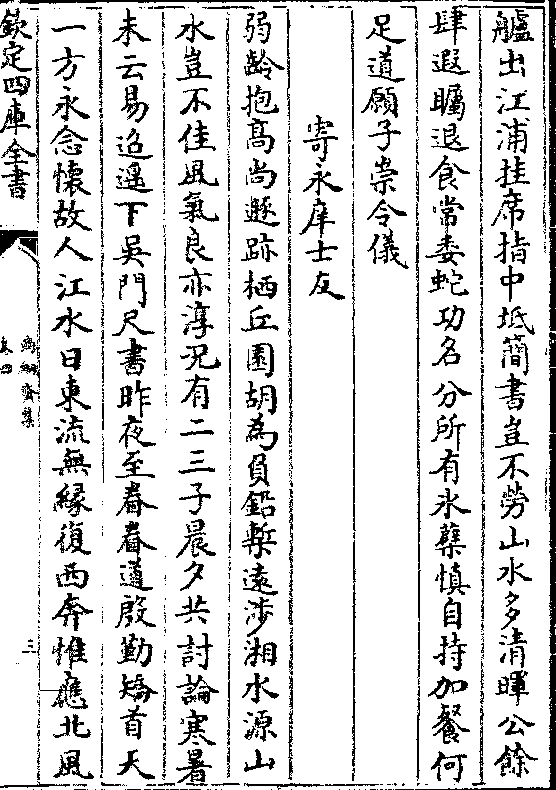 艫出江浦挂席指中坻簡書豈不勞山水多清暉公餘
肆遐矚退食常委蛇功名分所有氷蘗慎自持加餐何
足道願子崇令儀
寄永庠士友
弱齡抱髙尚遯跡栖丘園胡為負鉛槧遠渉湘水源山
水豈不佳風氣良亦淳况有二三子晨夕共討論寒暑
未云易迢遥下吳門尺書昨夜至眷眷道殷勤矯首天
一方永念懷故人江水日東流無縁復西奔惟應北風
欽定四庫全書
卷四
三